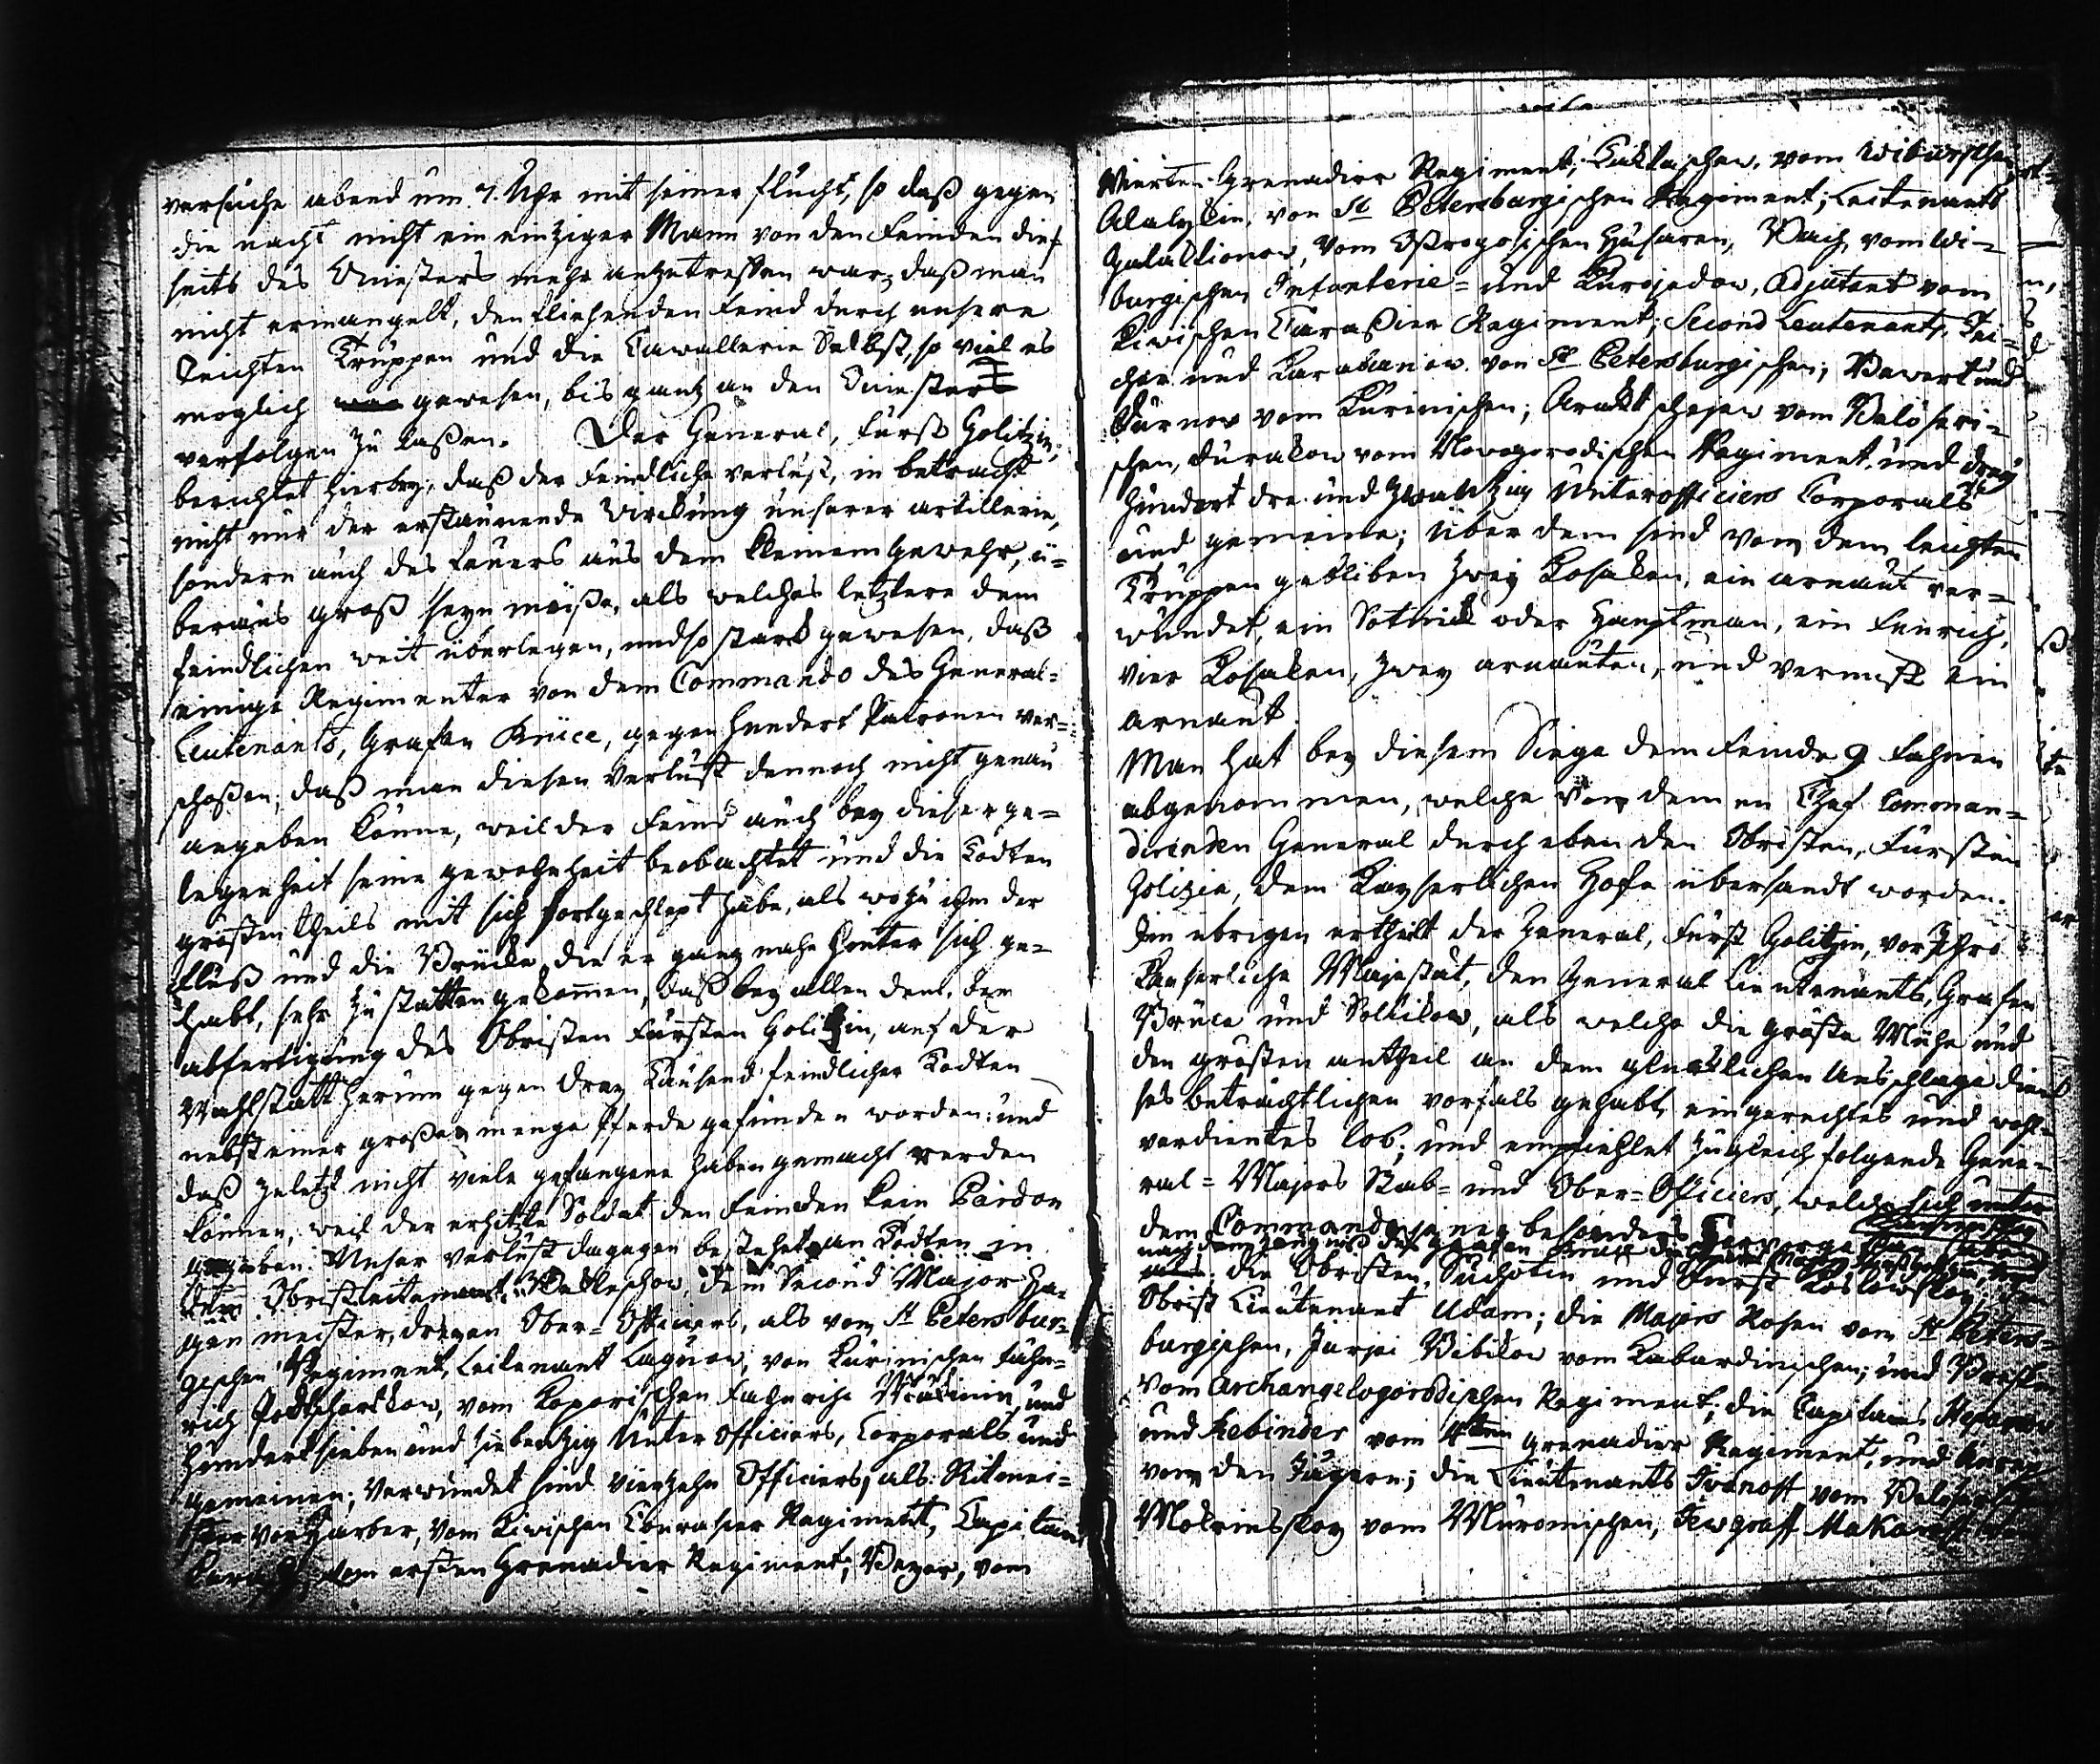 versuche abend um 7. Uhr mit seiner flucht, so daß gegen
die nacht nicht ein eintziger Mann von den Feinden dies
seits des Dniesters mehr anzutreffen war, daß man
nicht ermangelt, den fliehenden Feind durch unsere
leichten Truppen und die Cavallerie Selbst, so viel es
moglich gewesen, bis gantz an den Dniester
verfolgen zu laßen. Der General, Fürst Golitzin,
berichtet hierbey, daß der Feindliche verlust, in betracht
nicht nur der erstaunende Wirckung unserer artillerie,
sondern auch des feuers aus dem kleinem gewehr, ü-
beraus groß seyn müße, als welches letztere dem
feindlichen weit überlegen, und so starck gewesen, daß
einige Regimenter von dem Commando des General-
Leutenants, Grafen Brüce, gegen hundert Patronen ver-
schoßen; daß man diesen Verlust dennoch nicht genau
angeben könne, weil der Feind auch bey dieser ge-
legenheit seine gewohnheit beobachtet und die Todten
größten theils mit sich fortgeschlept habe, als wozu ihm der
Fluß und die Brücke, die er gantz nahe hinter sich ge-
habt, sehr zu statten gekommen, daß bey allen dem, der
abfertigung des Obristen Fürsten Golitzin, auf der
Wahlstatt herum gegen drey Tausend feindlicher Todten
nebst einer großen menge Pferde gefunden worden: und
daß zuletzt nicht viele gefangene haben gemacht werden
können, weil der erhitzte Soldat den Feinden kein Pardon
gegeben. Unser verlust dagegen bestehet an Todten in
dem Obristleitenant, dem Second Major Ha-
gen meister, dreyen Ober-Officiers, als vom St Petersbur-
gischen Regiment, Leitenant Lagunow, von Kurinischen Fähn-
rich vom Koporischen Fähnrich und
hundert sieben und siebentzig Unter Officiers, Corporals und
gemeinen; Verwundet sind vierzehn Officiers, als: Ritmei-
ster von Garber, vom Kiwischen Courasier Regiment, Capitain
vom ersten Grenadier Regiment; Bezar, vom
Vierten Grenadier Regiment; vom Wiburschen
Alalykin, von St Petersburgischen Regiment; Leitenants
Galaktionow, vom Ostrogosischen Husaren, Bach, vom Wi-
burgischen Infanterie- und Kurojedow, Adjutant vom
Kiwischen Cüraßier Regiment; Second Leutenants, Tei-
cher und Karabanow von St Petersburgischen; Bawert und
Turner vom Kurinischen; Araktschejew vom Beloseri-
schen, Durakow vom Novogorodischen Regiment, und drey
hundert drei und zwantzig Unterofficiers Corporals
und gemeine; über dem sind von dem leichten
Truppen gebliben zwey Kosaken, ein arnaut ver-
wundet, ein Sotnick oder Hauptman, ein Fenrich,
vier Kosaken, zwey arnauten, und vermist ein
arnaut.
Man hat bey diesem Siege dem Feinde 9 Fahnen
abgenommen, welche von dem en Chef comman-
direnden General durch eben den Obristen, Fürsten
Golizin, dem Kayserlichen Hofe übersandt worden.
Im ubrigen ertheilt der General, Fürst Golitzin, vor Ihro
Kayserliche Majestät, den General Lieutenants, Grafen
Brüce und Soltikow, als welche die größte Mühe und
den großten antheil an dem glucklichen Ausschlage die-
ses beträchtlichen vorfals gehabt, ein gerechtes und wohl-
verdientes lob; und empfiehlet zugleich folgende Gene-
ral-Majors Stab- und Ober-Officiers, welche sich unter
dem Commando besonders
nach dem Zeugniß des Grafen Bruce
die Obristen, Suchotin und Fürst Koslowskoy;
Obrist Lieutenant Adam; die Majors Rosen vom St Peters-
burgischen, Jurjei Bibikow vom Kabardinischen; und
vom Archangelogorodischen Regiment; die Capitains
und Rebinder vom 4ten Grenadier Regiment, und
von den Jägern; die Lieutenants Ivanoff vom
Mokrinskoy vom Muromischen, Jewgraff Makaroff